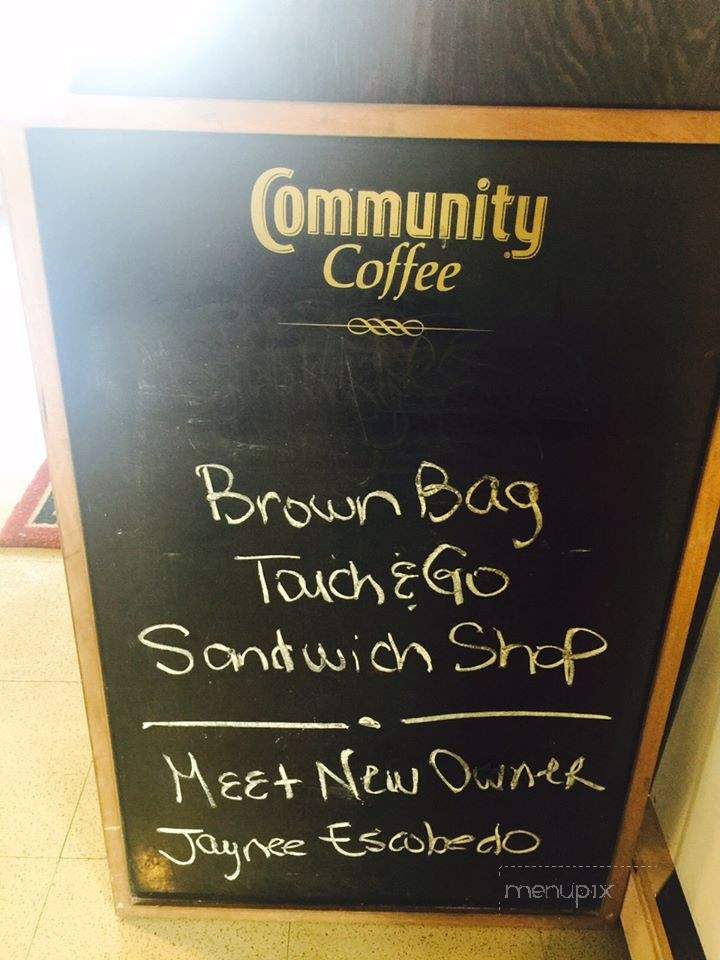 Community
Coffee
Brown Bag
Touch & Go
Sandwich Shop
Meet New Owner
Jaynee Escobedo
menupix